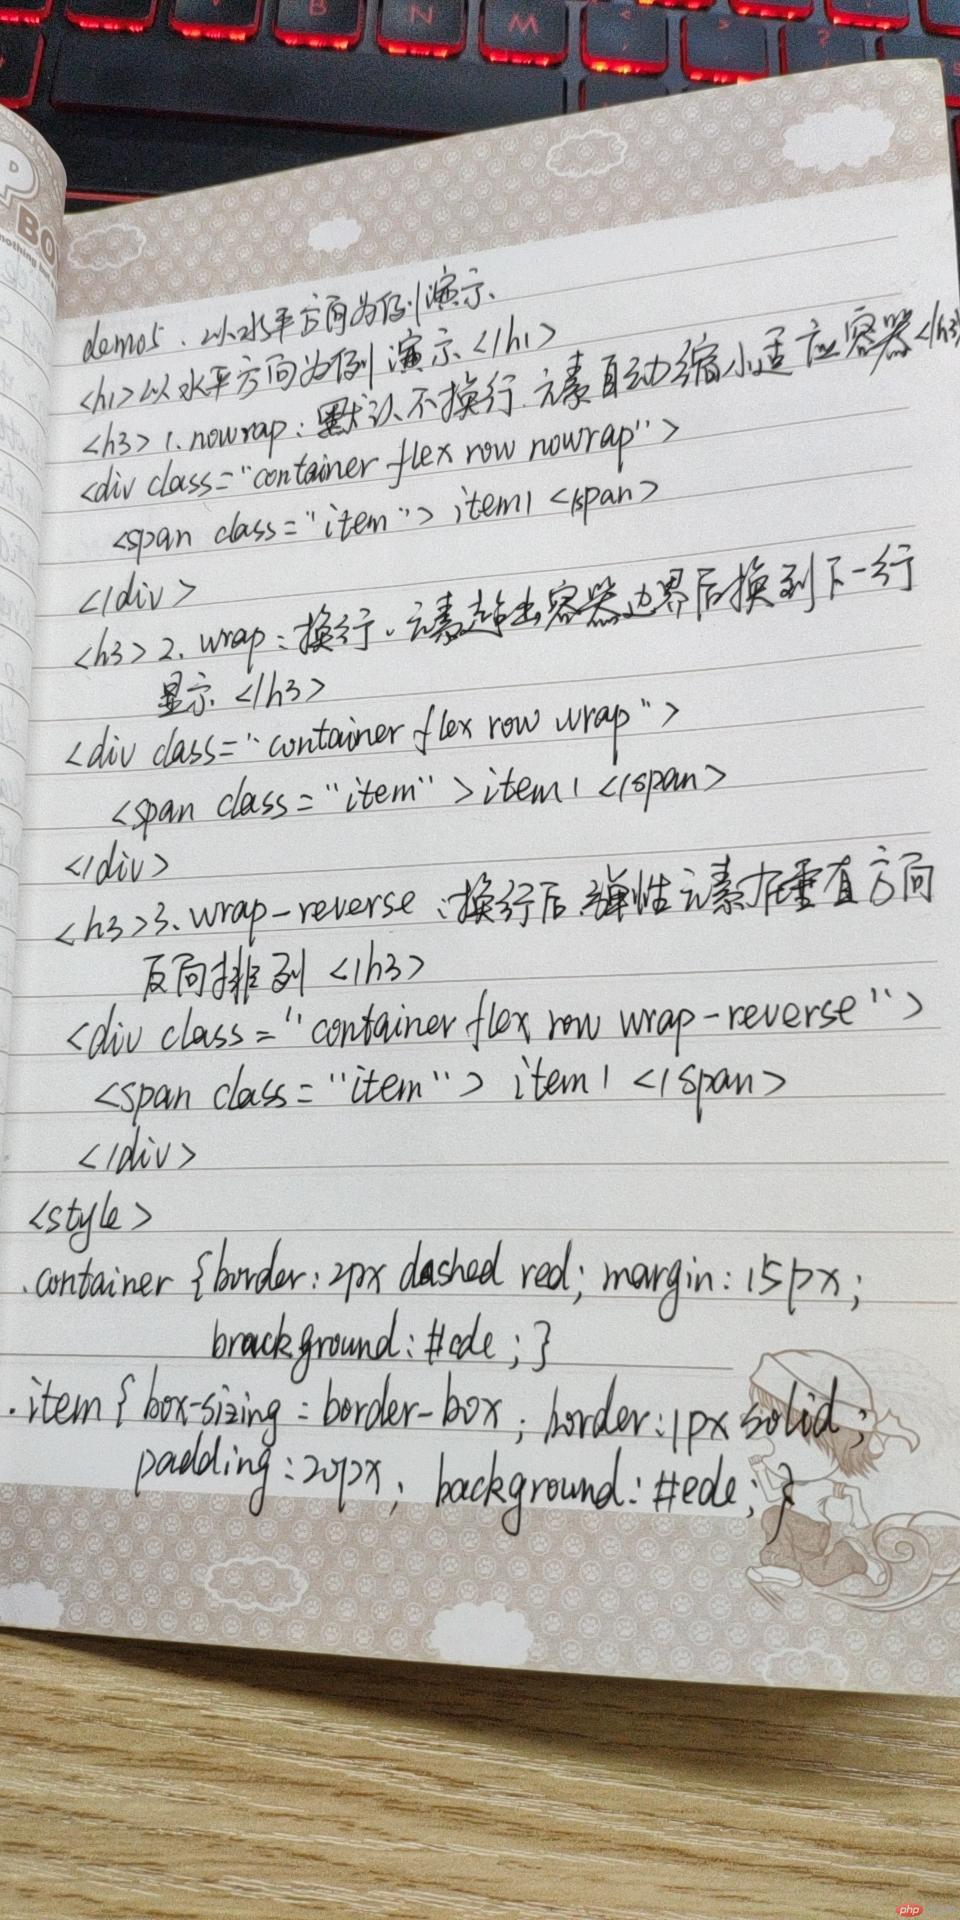 B N M
P
BO
nothing
demo5.以水平方向为例演示.
<h1>以水平方向为例演示</h1>
<h3>1.nowrap:默认不换行.元素自动缩小适应容器</h3>
<div class="container flex row nowrap">
<span class="item">item1</span>
</div>
<h3>2.wrap:换行、元素超出容器边界后换到下一行
显示</h3>
<div class="container flex row wrap">
<span class="item">item1</span>
</div>
<h3>3、wrap-reverse:换行后、弹性元素在垂直方向
反向排列</h3>
<div class="container flex row wrap-reverse">
<span class="item">item1</span>
</div>
<style>
.container {border:2px dashed red; margin:15px;
brackground:#cde;}
.item{box-sizing:border-box; border:1px solid;
padding:20px; background:#ede;}
php